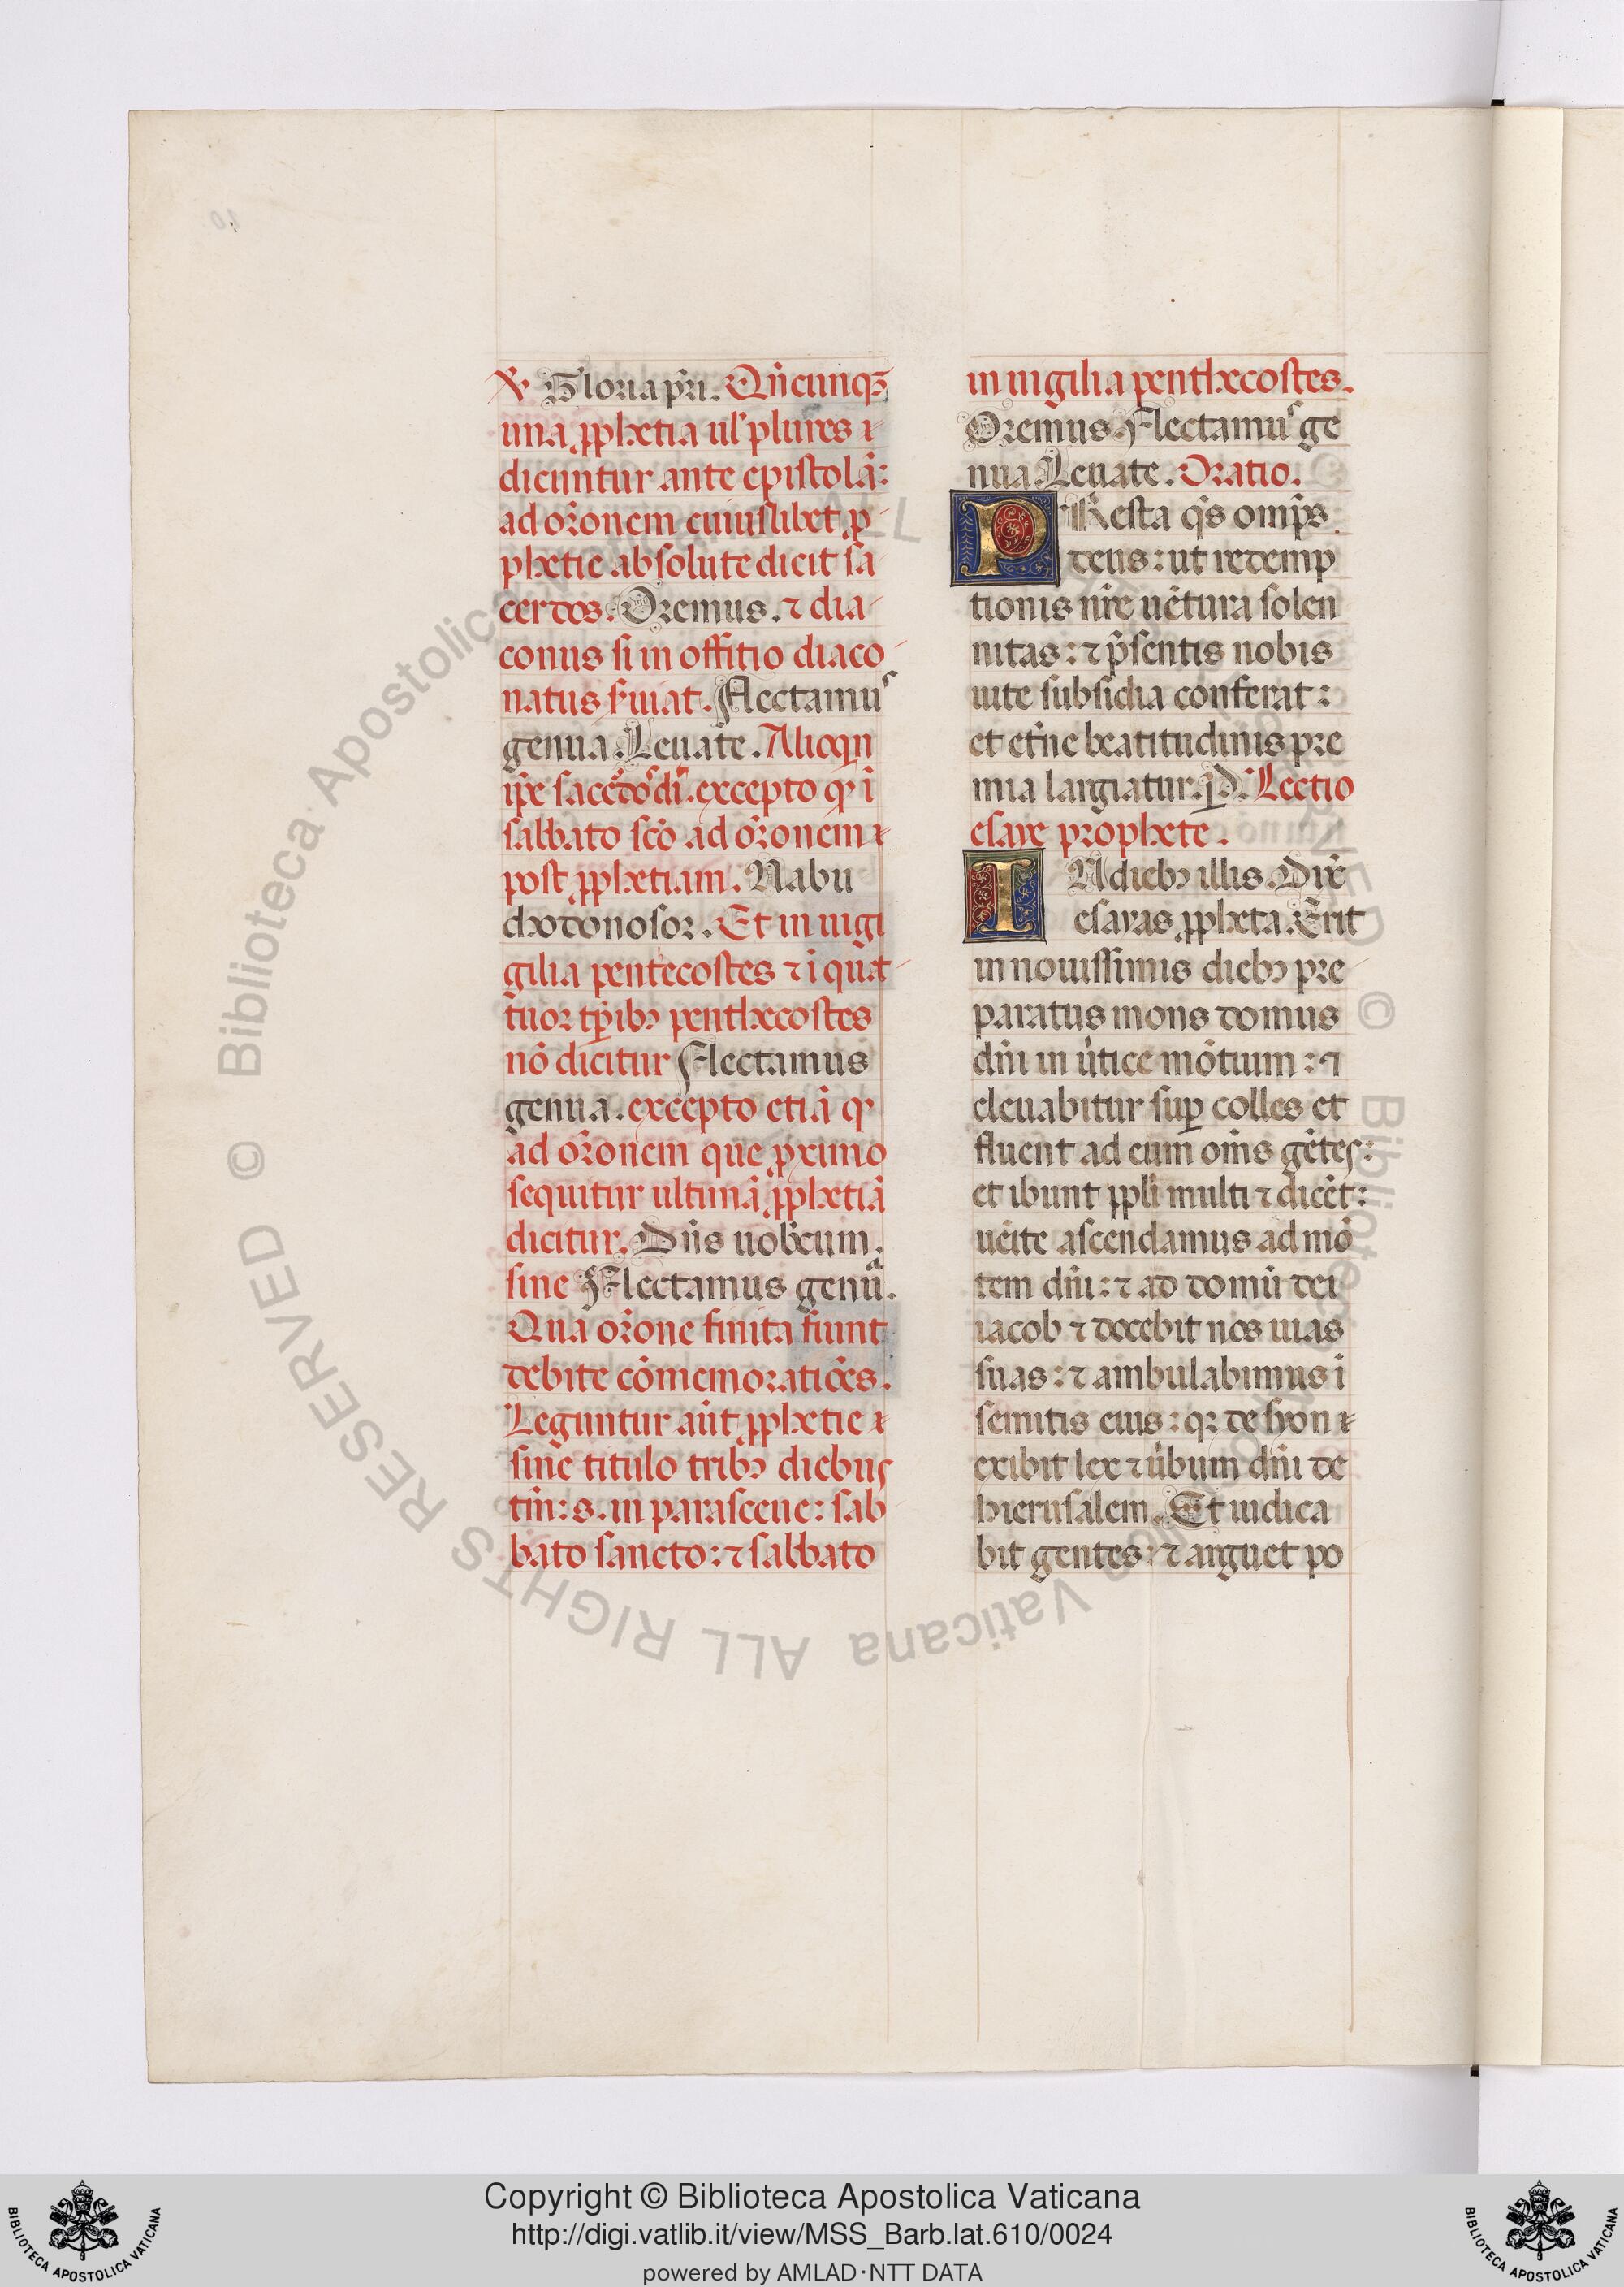 ℣. Gloria pr̃i. Qn̄cunqꝫ
una ꝓphetia ul' plures
dicuntur ante epistolā:
ad or̄onem cuiuslibet ꝓ
phetie absolute dicit sa
cerdos. Oremus. ⁊ dia
conus si in offitio diaco
natus s̄uiat. Flectamus
genua. Leuate. Alioqn
ip̄e sac̄edos dı̄. excepto ꝙ ī
sabbato sc̄o ad or̄onem
post ꝓphetiam. Nabu
chodonosor. Et in uigi
gilia pentecostes ⁊ ī quat
tuor tp̄ibꝫ penthecostes
nō dicitur Flectamus
genua. excepto etiā ꝙ
ad or̄onem que ꝓximo
sequitur ultimā ꝓphetiā
dicitur. Dn̄s uobcum.
sine Flectamus genua.
Qua or̄one finita fiunt
debite cōmemoratiōes.
Leguntur aūt ꝓphetie
sine titulo tribꝫ diebus
tm̄: s. in parasceue: sab
bato sancto: ⁊ sabbato
in uigilia penthecostes.
Oremus. Flectamus ge
nua Leuate. Oratio.
PResta q̄s omp̄s
deus: ut redemp
tionis nr̄e uētura solen
nitas: ⁊ p̄sentis nobis
uite subsidia conferat:
et et̄ne beatitudinis pre
mia largiatur. p̱ d. Lectio
esaye prophete.
IN diebꝫ illis. Dix̄
esayas ꝓpheta. Erit
in nouissimis diebꝫ pre
paratus mons domus
dn̄i in ūtice mōtium: ⁊
eleuabitur suꝑ colles et
fluent ad eum om̄s gētes:
et ibunt ppl̄i multi ⁊ dicēt:
ueīte ascendamus ad mō
tem dn̄i: ⁊ ad domū dei
iacob ⁊ docebit nos uias
suas: ⁊ ambulabimus ī
semitis eius: qꝛ de syon
exibit lex ⁊ ūbum dn̄i de
hierusalem. Et iudica
bit gentes: ⁊ arguet po
Copyright © Biblioteca Apostolica Vaticana
http://digi.vatlib.it/view/MSS_Barb.lat.610/0024
powered by AMLAD·NTT DATA
© Biblioteca Apostolica Vaticana ALL RIGHTS RESERVED
BIBLIOTECA APOSTOLICA VATICANA
BIBLIOTECA APOSTOLICA VATICANA